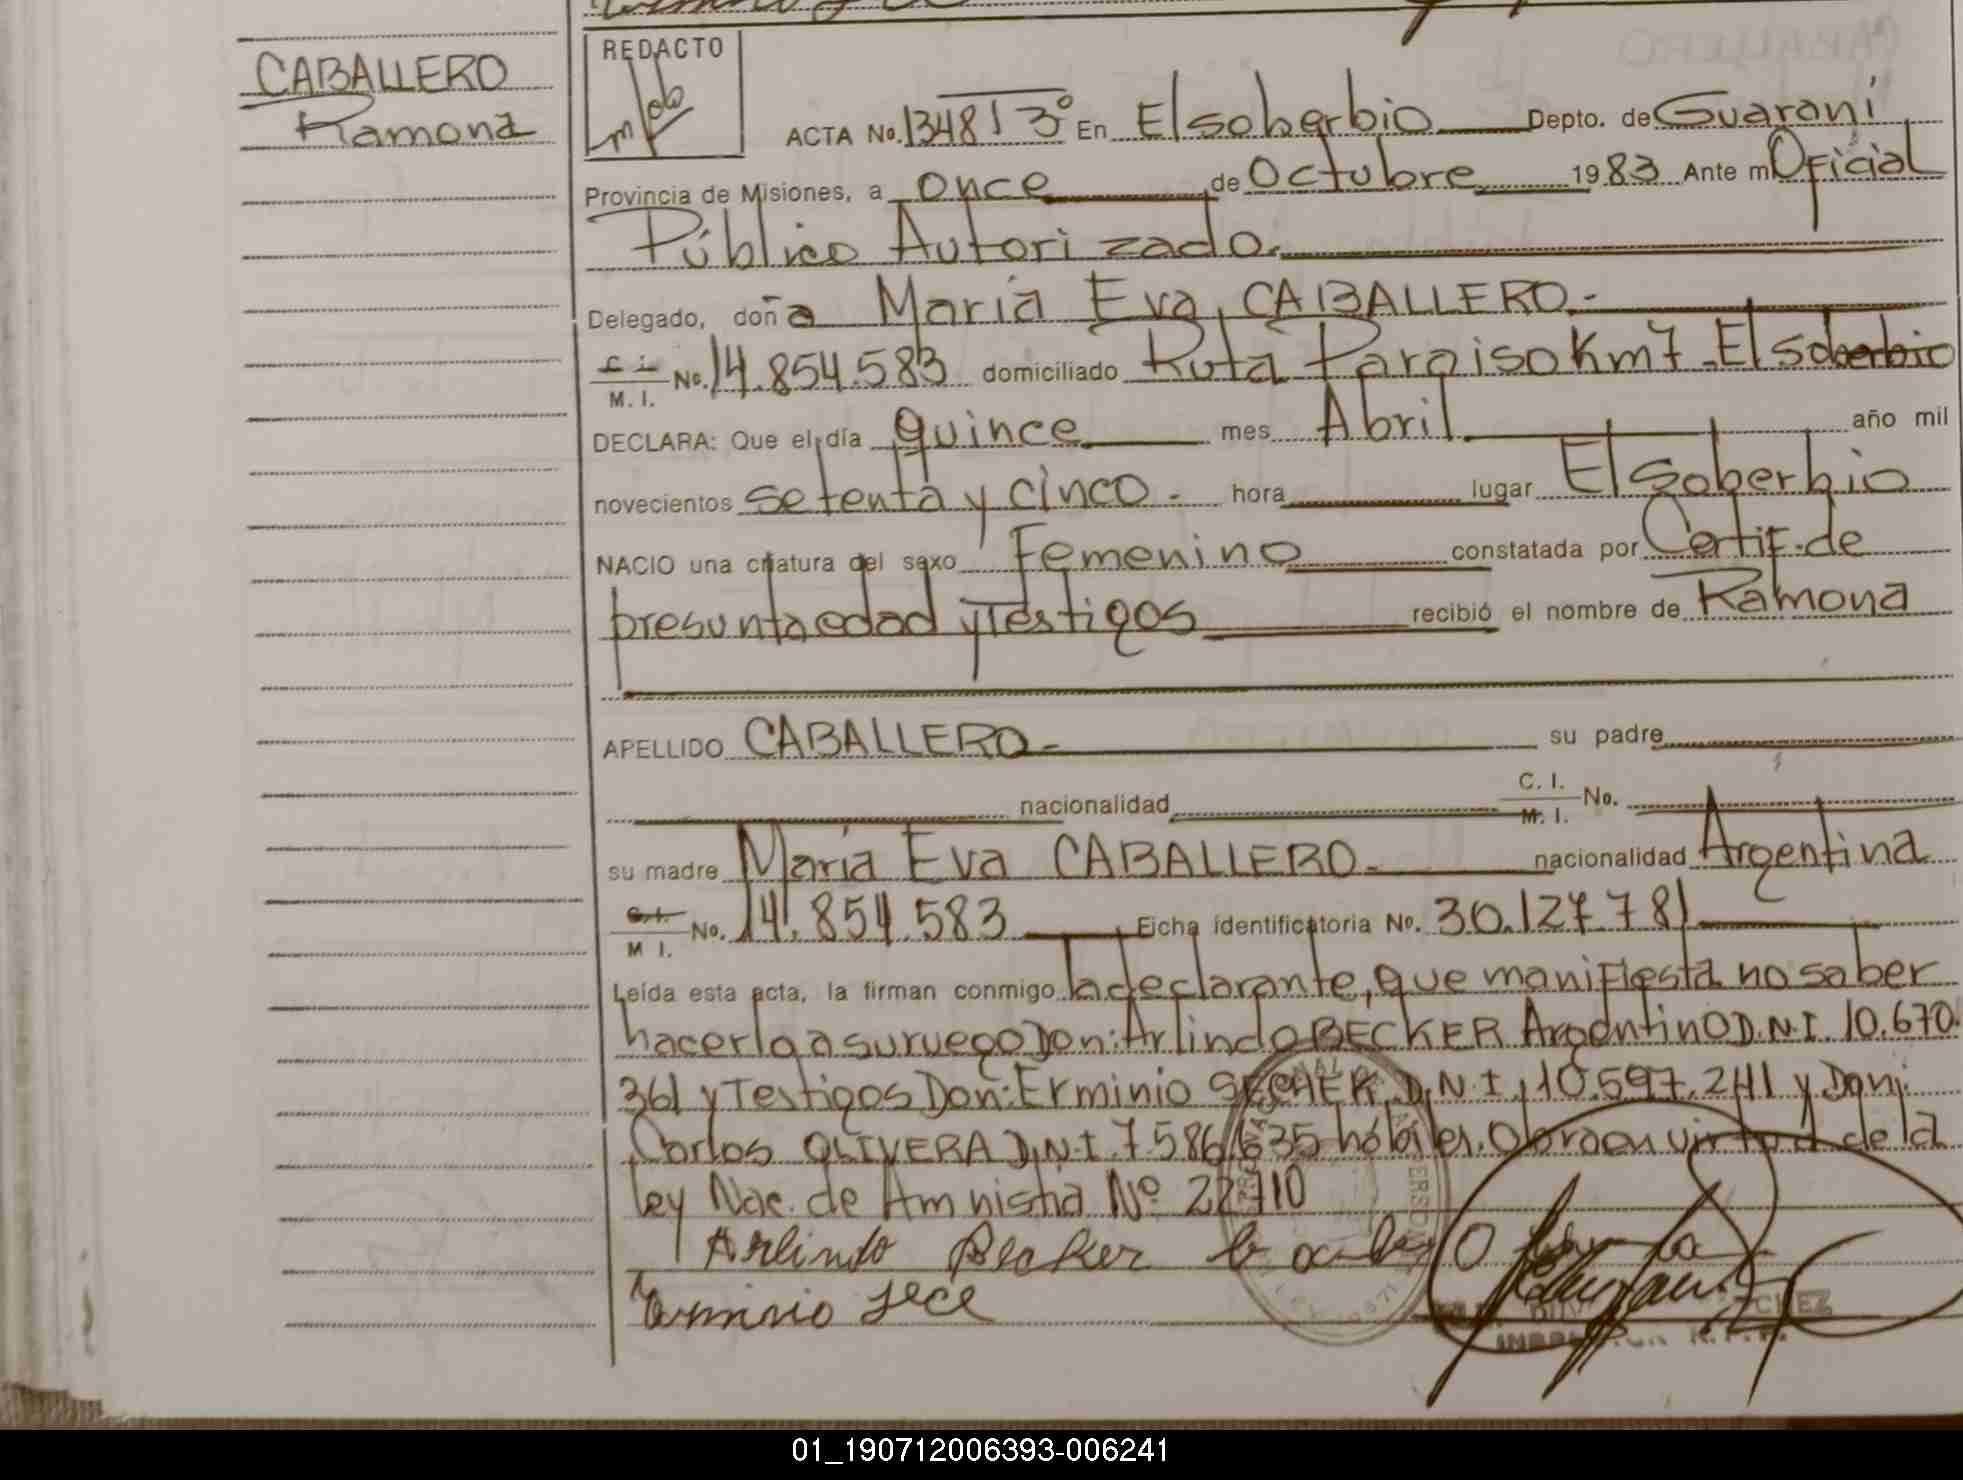 CABALLERO
Ramona
REDACTO
ACTA No. 1348 T 3º En El soberbio Depto. de Guaraní
Provincia de Misiones, a once de Octubre 1983 Ante mi Oficial
Público Autorizado.
Delegado, doña María Eva CABALLERO.-
C. I. / M. I. No. 14.854.583 domiciliado Ruta Paraiso Km 7 - El soberbio
DECLARA: Que el día quince mes Abril año mil
novecientos setenta y cinco. hora lugar El soberbio
NACIO una criatura del sexo Femenino constatada por Certif. de
presunta edad y Testigos recibió el nombre de Ramona
APELLIDO CABALLERO su padre
nacionalidad C. I. / M. I. No.
su madre María Eva CABALLERO nacionalidad Argentina
C. I. / M I. No. 14.854.583 Ficha identificatoria No. 30.127.781
Leída esta acta, la firman conmigo la declarante, que manifiesta no saber
hacerlo a su ruego Don: Arlindo BECKER Argentino D.N.I. 10.670.
361 y Testigos Don: Erminio D.N.I. 10.597.241 y Don:
Carlos OLIVERA D.N.I. 7.586.635 hábiles. Obra en virtud de la
ley Nac. de Amnistia Nº 22710
Arlindo Becker
01_190712006393-006241